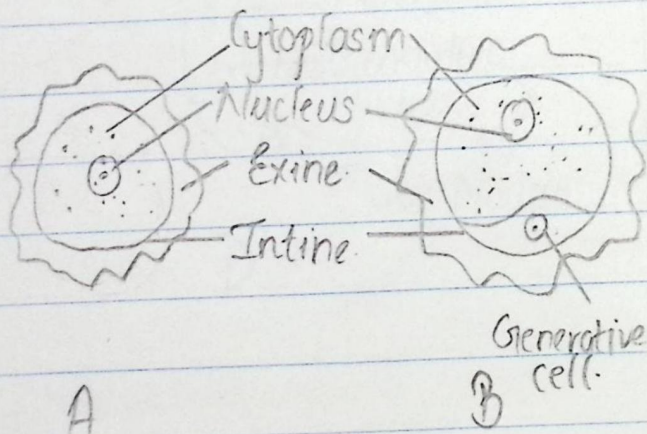 Cytoplasm
Nucleus
Exine.
Intine.
Generative
cell.
A
B